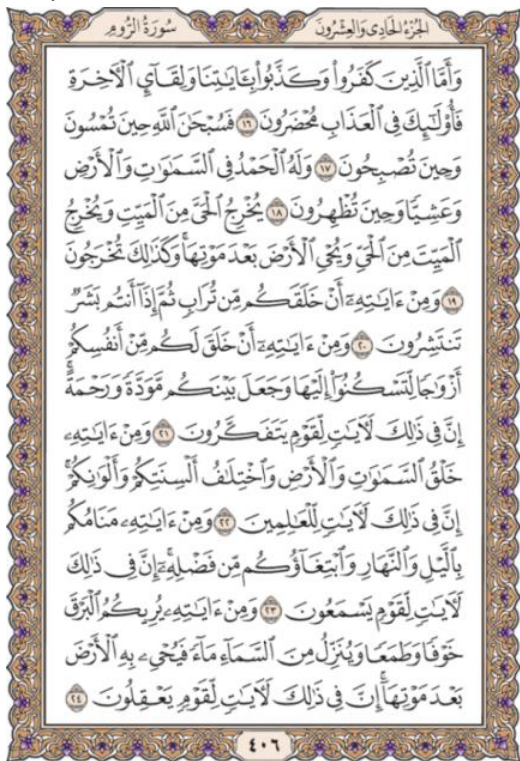 الجُزْءُ الحَادِى وَالعِشْرُونَ
سُورَةُ الرُّومِ
وَأَمَّا ٱلَّذِينَ كَفَرُواْ وَكَذَّبُواْ بِـَٔايَٰتِنَا وَلِقَآيِٕ ٱلۡأٓخِرَةِ
فَأُوْلَٰٓئِكَ فِى ٱلۡعَذَابِ مُحۡضَرُونَ ١٦ فَسُبۡحَٰنَ ٱللَّهِ حِينَ تُمۡسُونَ
وَحِينَ تُصۡبِحُونَ ١٧ وَلَهُ ٱلۡحَمۡدُ فِى ٱلسَّمَٰوَٰتِ وَٱلۡأَرۡضِ
وَعَشِيًّا وَحِينَ تُظۡهِرُونَ ١٨ يُخۡرِجُ ٱلۡحَىَّ مِنَ ٱلۡمَيِّتِ وَيُخۡرِجُ
ٱلۡمَيِّتَ مِنَ ٱلۡحَىِّ وَيُحۡىِ ٱلۡأَرۡضَ بَعۡدَ مَوۡتِهَاۚ وَكَذَٰلِكَ تُخۡرَجُونَ
١٩ وَمِنۡ ءَايَٰتِهِۦٓ أَنۡ خَلَقَكُم مِّن تُرَابٖ ثُمَّ إِذَآ أَنتُم بَشَرٞ
تَنتَشِرُونَ ٢٠ وَمِنۡ ءَايَٰتِهِۦٓ أَنۡ خَلَقَ لَكُم مِّنۡ أَنفُسِكُمۡ
أَزۡوَٰجٗا لِّتَسۡكُنُوٓاْ إِلَيۡهَا وَجَعَلَ بَيۡنَكُم مَّوَدَّةٗ وَرَحۡمَةًۚ
إِنَّ فِى ذَٰلِكَ لَأٓيَٰتٖ لِّقَوۡمٖ يَتَفَكَّرُونَ ٢١ وَمِنۡ ءَايَٰتِهِۦ
خَلۡقُ ٱلسَّمَٰوَٰتِ وَٱلۡأَرۡضِ وَٱخۡتِلَٰفُ أَلۡسِنَتِكُمۡ وَأَلۡوَٰنِكُمۡۚ
إِنَّ فِى ذَٰلِكَ لَأٓيَٰتٖ لِّلۡعَٰلِمِينَ ٢٢ وَمِنۡ ءَايَٰتِهِۦ مَنَامُكُم
بِٱلَّيۡلِ وَٱلنَّهَارِ وَٱبۡتِغَآؤُكُم مِّن فَضۡلِهِۦٓۚ إِنَّ فِى ذَٰلِكَ
لَأٓيَٰتٖ لِّقَوۡمٖ يَسۡمَعُونَ ٢٣ وَمِنۡ ءَايَٰتِهِۦ يُرِيكُمُ ٱلۡبَرۡقَ
خَوۡفٗا وَطَمَعٗا وَيُنَزِّلُ مِنَ ٱلسَّمَآءِ مَآءٗ فَيُحۡىِۦ بِهِ ٱلۡأَرۡضَ
بَعۡدَ مَوۡتِهَآۚ إِنَّ فِى ذَٰلِكَ لَأٓيَٰتٖ لِّقَوۡمٖ يَعۡقِلُونَ ٢٤
٤٠٦